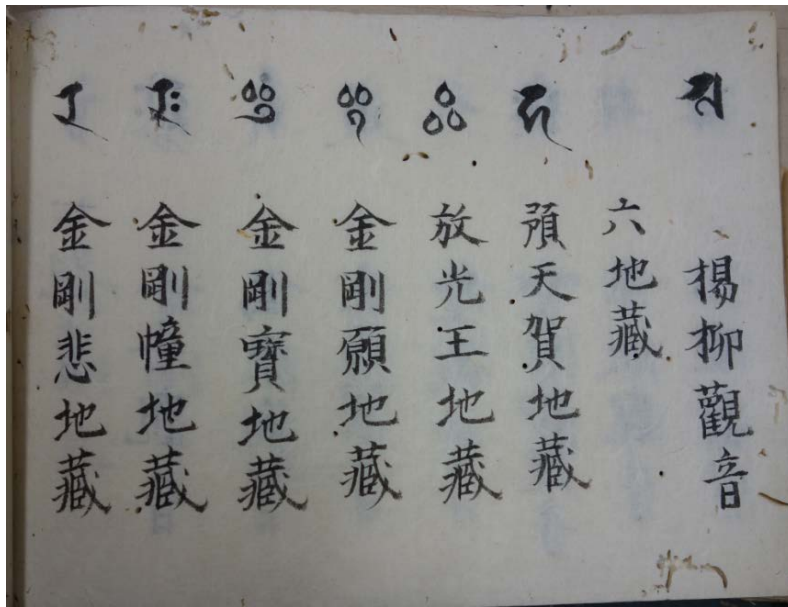 楊柳觀音
六地藏
預天賀地藏
放光王地藏
金剛願地藏
金剛寶地藏
金剛幢地藏
金剛悲地藏